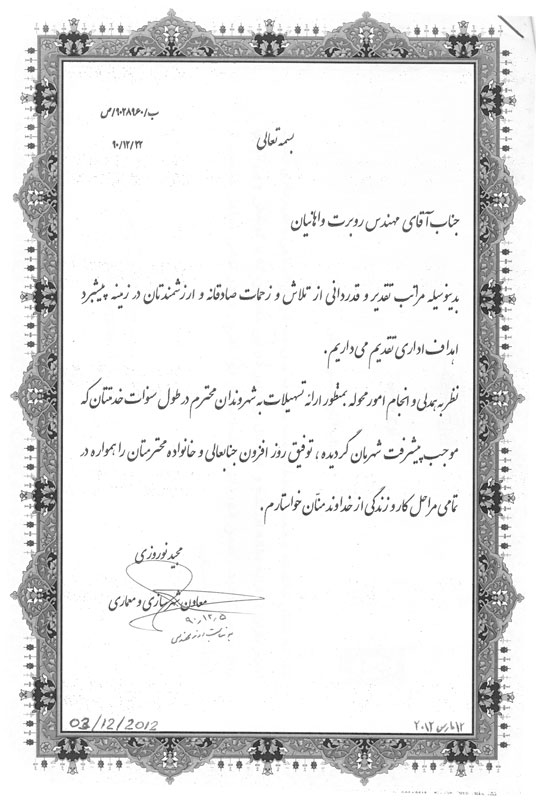 ب/۹۰۲۸۹۶۰/ص
۹۰/۱۲/۲۲
بسمه تعالی
جناب آقای مهندس روبرت واهانیان
بدینوسیله مراتب تقدیر و قدردانی از تلاش و زحمات صادقانه و ارزشمندتان در زمینه پیشبرد
اهداف اداری تقدیم می داریم.
نظر به همدلی و انجام امور محوله بمنظور ارائه تسهیلات به شهروندان محترم در طول سنوات خدمتتان که
موجب پیشرفت شهرمان گردیده، توفیق روز افزون جنابعالی و خانواده محترمتان را همواره در
تمامی مراحل کار و زندگی از خداوند منّان خواستارم.
مجید نوروزی
معاون شهرسازی و معماری
۹۰،۱۲،۵
03/12/2012
۱۲ مارس ۲۰۱۲